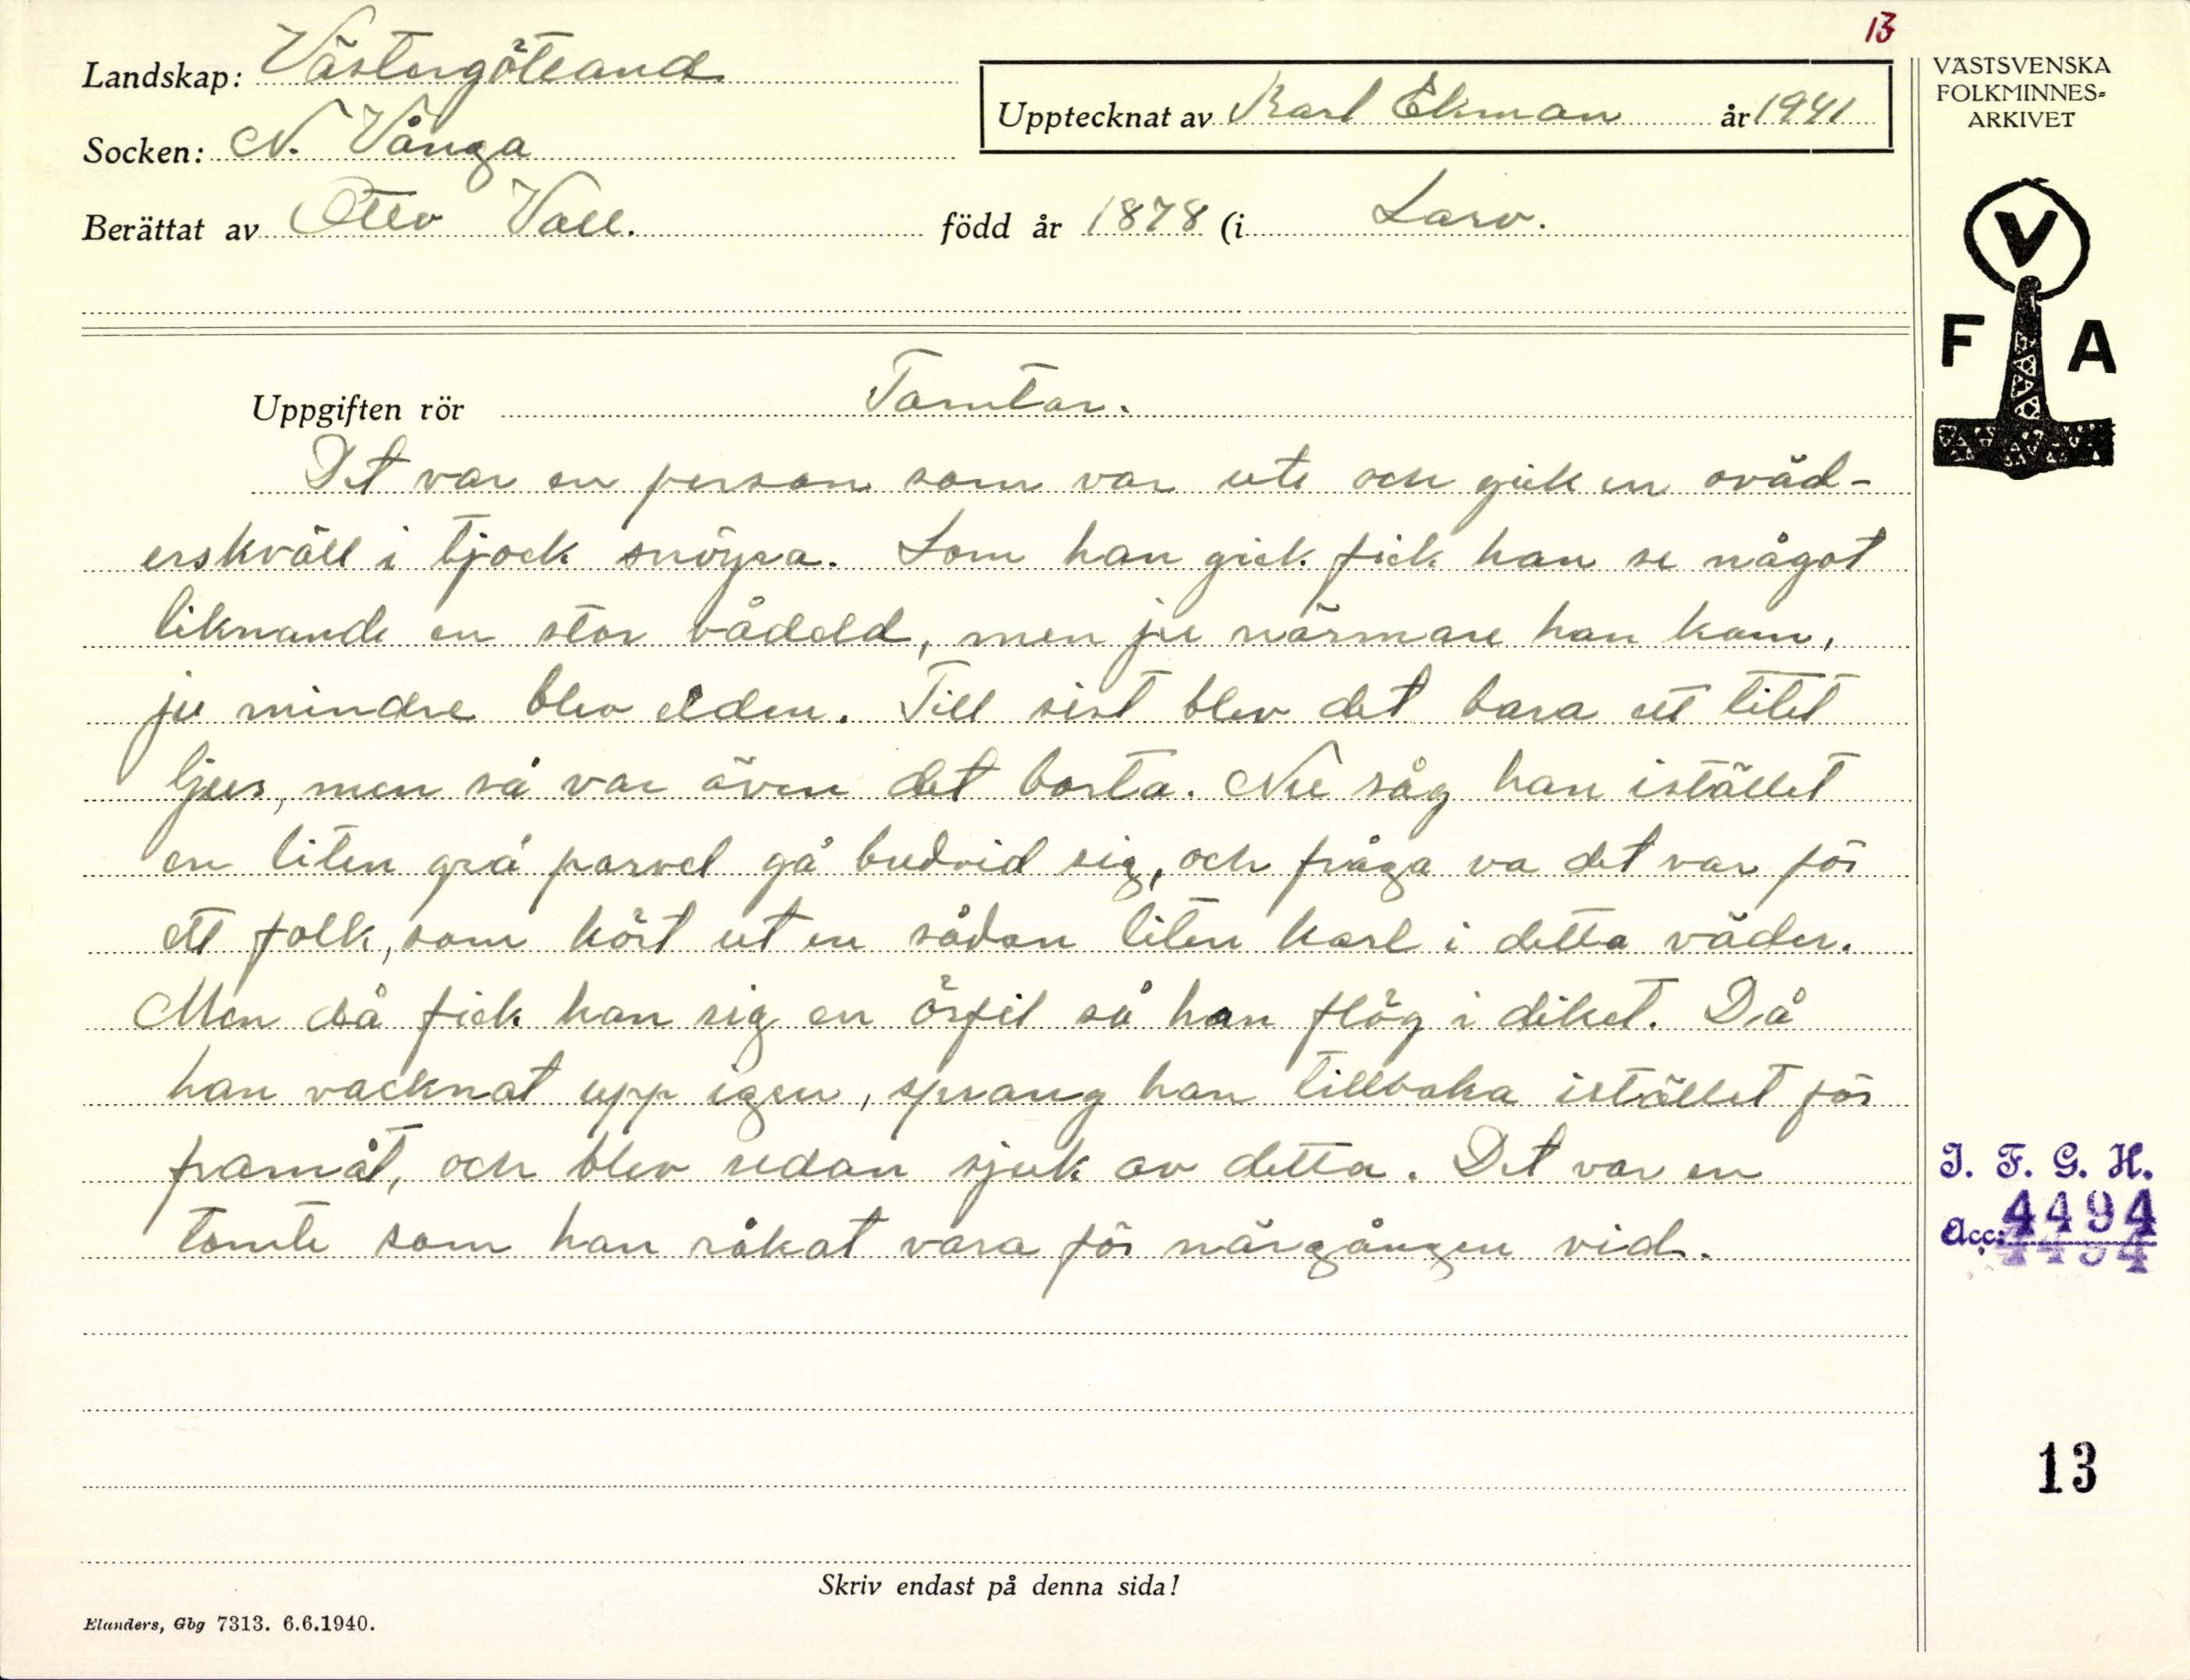 13
Landskap: Västergötland
Upptecknat av Karl Ekman år 1941
Socken: N. Vånga
Berättat av Otto Vall. född år 1878 (i Larv.
VÄSTSVENSKA
FOLKMINNES=
ARKIVET
V
F A
Uppgiften rör Tomtar.
Det var en person som var ute och gick en oväd-
erskväll i tjock snöyra. Som han gick fick han se något
liknande en stor vådeld, men ju närmare han kom,
ju mindre blev elden. Till sist blev det bara ett litet
ljus, men så var även det borta. Nu såg han istället
en liten grå parvel gå bredvid sig, och fråga va det var för
ett folk, som kört ut en sådan liten karl i detta väder.
Men då fick han sig en örfil så han flög i diket. Då
han vacknat upp igen, sprang han tillbaka istället för
framåt, och blev sedan sjuk av detta. Det var en
tomte som han råkat vara för närgången vid.
I. F. G. H.
Acc: 4494
13
Skriv endast på denna sida!
Elanders, Gbg 7313. 6.6.1940.